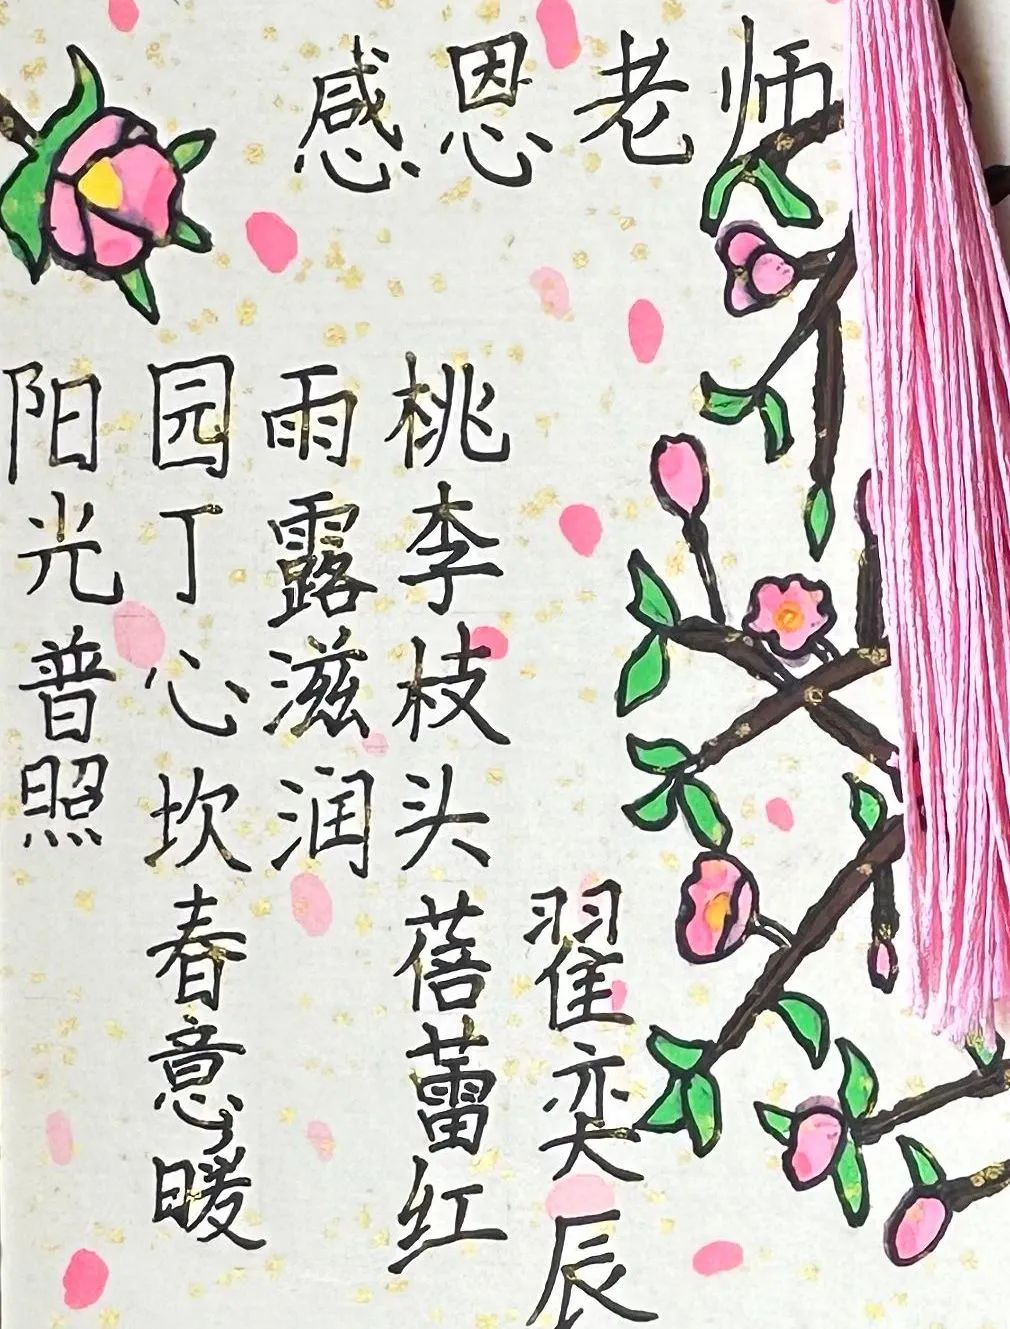 感恩老师
翟奕辰
桃李枝头蓓蕾红
雨露滋润
园丁心坎春意暖
阳光普照